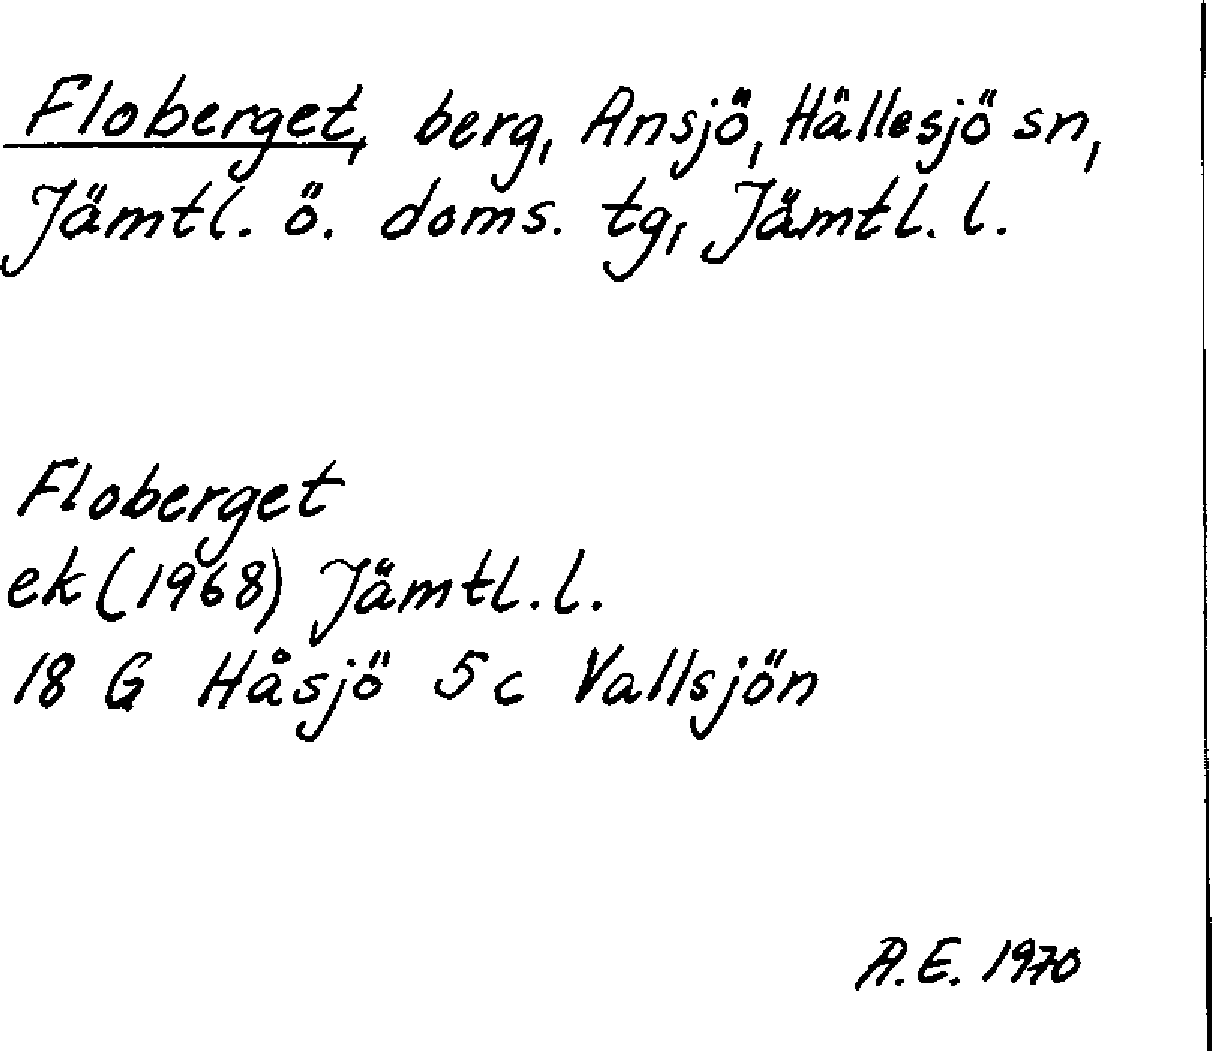 Floberget, berg, Ansjö, Hällesjö sn,
Jämtl. ö. doms. tg, Jämtl. l.
Floberget
ek (1968) Jämtl. l.
18 G Håsjö 5 c Vallsjön
A.E. 1970